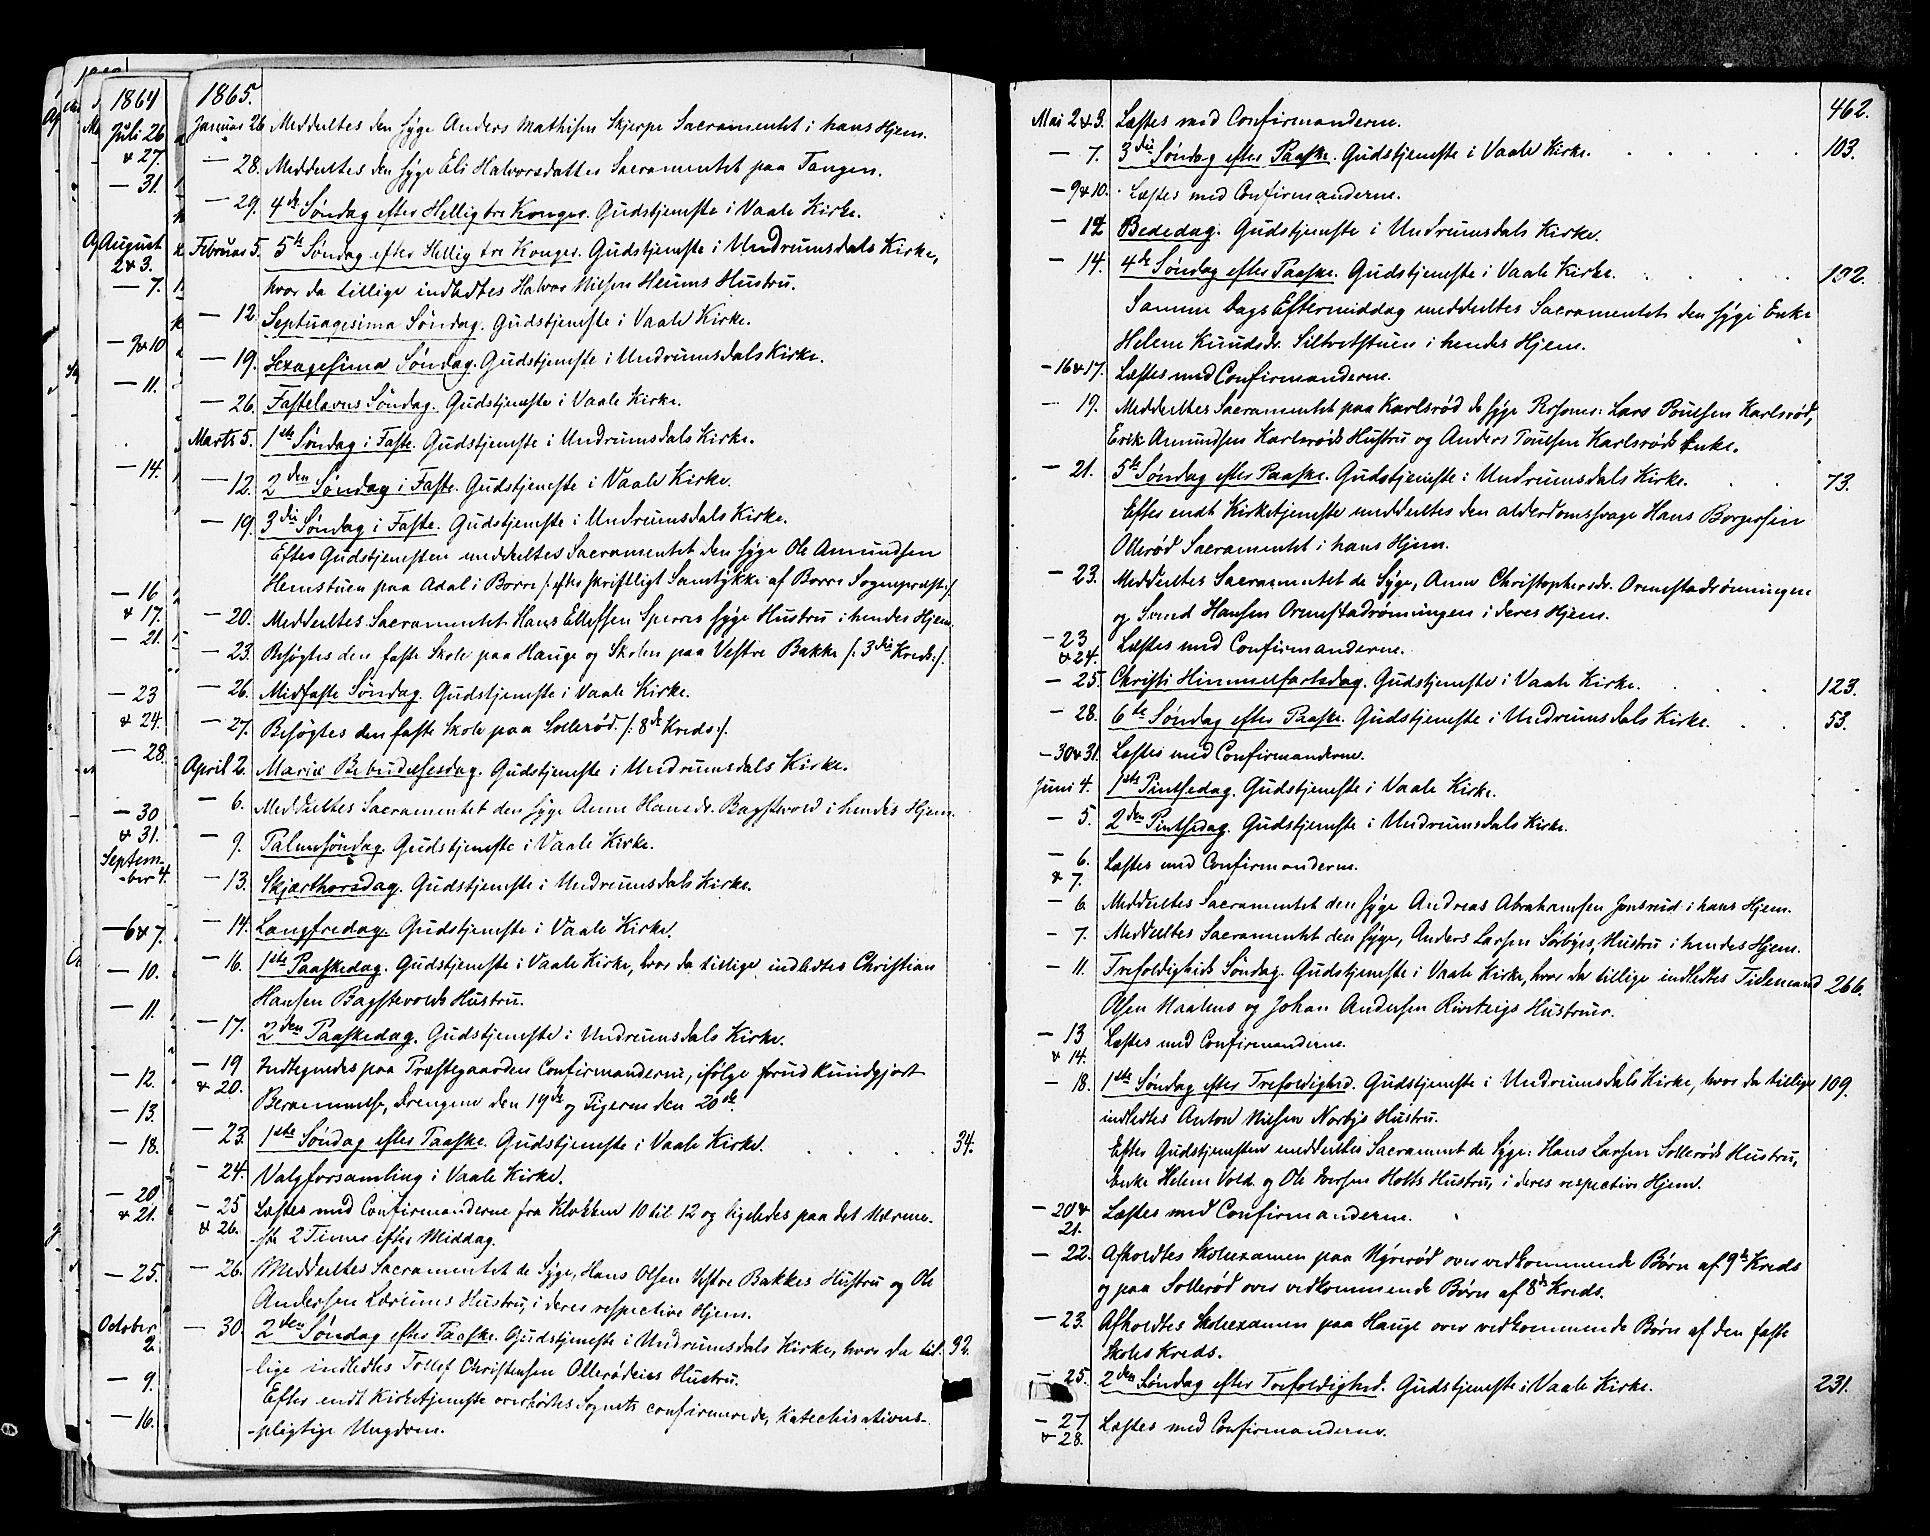 1864
Juli 26
& 27.
— 31.
August
2 & 3.
— 7.
— 9 & 10
— 11.
— 14.
— 16
& 17.
— 21.
— 23
& 24.
— 28.
— 30
& 31.
Septem-
-ber 4.
— 6 & 7.
— 10.
— 11.
— 12.
— 13.
— 18.
— 20
& 21.
— 25.
October
2.
— 9.
— 16.
1865.
Januar 26 Meddeeltes den syge Anders Mathisen Skjerpe Sacramentet i hans Hjem.
— 28. Meddeeltes den syge Eli Halvorsdatter Sacramentet paa Tangen.
— 29. 4de Søndag efter Hellig tre Konger. Gudstjeneste i Vaale Kirke.
Februar 5. 5te Søndag efter Hellig tre Konger. Gudstjeneste i Undrumsdals Kirke,
hvor da tillige indledtes Halvor Nilsen Heiums Hustru.
— 12. Septuagesima Søndag. Gudstjeneste i Vaale Kirke.
— 19. Sexagesima Søndag. Gudstjeneste i Undrumsdals Kirke.
— 26. Fastelavns Søndag. Gudstjeneste i Vaale Kirke.
Marts 5. 1ste Søndag i Faste. Gudstjeneste i Undrumsdals Kirke.
— 12. 2den Søndag i Faste. Gudstjeneste i Vaale Kirke.
— 19. 3die Søndag i Faste. Gudstjeneste i Undrumsdals Kirke.
Efter Gudstjenesten meddeeltes Sacramentet den syge Ole Amundsen
Hemstuen paa Adal i Borre /: efter skriftligt Samtykke af Borre Sognepræst :/.
— 20. Meddeeltes Sacramentet Hans Ellefsen Sperres syge Hustru i hendes Hjem.
— 23. Besøgtes den faste Skole paa Hauge og Skolen paa Vestre Bakke /: 3die Kreds :/.
— 26. Midfaste Søndag. Gudstjeneste i Vaale Kirke.
— 27. Besøgtes den faste Skole paa Sollerød /: 8de Kreds :/.
April 2. Mariæ Bebudelsesdag. Gudstjeneste i Undrumsdals Kirke.
— 6. Meddeeltes Sacramentet den syge Anne Hansdr. Bagstevold i hendes Hjem.
— 9. Palmesøndag. Gudstjeneste i Vaale Kirke.
— 13. Skjærthorsdag. Gudstjeneste i Undrumsdals Kirke.
— 14. Langfredag. Gudstjeneste i Vaale Kirke.
— 16. 1ste Paaskedag. Gudstjeneste i Vaale Kirke, hvor da tillige indledtes Christian
Hansen Bagstevolds Hustru.
— 17. 2den Paaskedag. Gudstjeneste i Undrumsdals Kirke.
— 19 Indtegnedes paa Præstegaarden Confirmanderne, ifølge forud kundgjort
& 20. Berammelse, Drengene den 19de og Pigerne den 20de.
— 23. 1ste Søndag efter Paaske. Gudstjeneste i Vaale Kirke. 34.
— 24. Valgforsamling i Vaale Kirke.
— 25 Læstes med Confirmanderne fra Klokken 10 til 12 og ligeledes paa det Nærme-
& 26. -ste 2 Timer efter Middag.
— 26. Meddeeltes Sacramentet de Syge, Hans Olsen Vestre Bakkes Hustru og Ole
Andersen Lærums Hustru, i deres respective Hjem.
— 30. 2den Søndag efter Paaske. Gudstjeneste i Undrumsdals Kirke, hvor da til- 92.
lige indledtes Tollef Christensen Ollerødeies Hustru.
Efter endt Kirketjeneste overhørtes Sognets confirmerede, katechisations-
-pligtige Ungdom.
462.
Mai 2 & 3. Læstes med Confirmanderne.
— 7. 3die Søndag efter Paaske. Gudstjeneste i Vaale Kirke. 103.
— 9 & 10. Læstes med Confirmanderne.
— 12. Bededag. Gudstjeneste i Undrumsdals Kirke.
— 14. 4de Søndag efter Paaske. Gudstjeneste i Vaale Kirke. 132.
Samme Dags Eftermiddag meddeeltes Sacramentet den syge Enke
Helene Knudsdr. Siltvetstuen i hendes Hjem.
— 16 & 17. Læstes med Confirmanderne.
— 19. Meddeeltes Sacramentet paa Karlsrød de syge Personer: Lars Poulsen Karlsrød,
Erik Amundsen Karlsrøds Hustru og Anders Poulsen Karlsrøds Enke.
— 21. 5te Søndag efter Paaske. Gudstjeneste i Undrumsdals Kirke. 73.
Efter endt Kirketjeneste meddeeltes den alderdomssvage Hans Borgersen
Ollerød Sacramentet i hans Hjem.
— 23. Meddeeltes Sacramentet de Syge, Anne Christophersdr. Ormestadrønningen
og Svend Hansen Ormestadrønningen i deres Hjem.
— 23 Læstes med Confirmanderne.
& 24.
— 25. Christi Himmelfartsdag. Gudstjeneste i Vaale Kirke. 123.
— 28. 6te Søndag efter Paaske. Gudstjeneste i Undrumsdals Kirke. 53.
— 30 & 31. Læstes med Confirmanderne.
Juni 4. 1ste Pintsedag. Gudstjeneste i Vaale Kirke.
— 5. 2den Pintsedag. Gudstjeneste i Undrumsdals Kirke.
— 6. Læstes med Confirmanderne.
& 7.
— 6. Meddeeltes Sacramentet den syge Andreas Abrahamsen Jonsrud i hans Hjem.
— 7. Meddeeltes Sacramentet den syge, Anders Larsen Sørbyes, Hustru i hendes Hjem.
— 11. Trefoldigheds Søndag. Gudstjeneste i Vaale Kirke, hvor da tillige indledtes Tidemand 266.
Olsen Haalens og Johan Andersen Hustruer.
— 13 Læstes med Confirmanderne.
& 14.
— 18. 1ste Søndag efter Trefoldighed. Gudstjeneste i Undrumsdals Kirke, hvor da tillige 109.
indledtes Anton Nilsen Norbys Hustru.
Efter Gudstjenesten meddeeltes Sacramentet de Syge: Hans Larsen Sollerøds Hustru,
Enke Helene Vold og Ole Iversen Holts Hustru, i deres respective Hjem.
— 20 & Læstes med Confirmanderne.
21.
— 22. Afholdtes Skoleexamen paa Hyrerød over vedkommende Børn af 9de Kreds
og paa Sollerød over vedkommende Børn af 8de Kreds.
— 23. Afholdtes Skoleexamen paa Hauge over vedkommende Børn af den faste
Skoles Kreds.
— 25. 2den Søndag efter Trefoldighed. Gudstjeneste i Vaale Kirke. 231.
— 27 Læstes med Confirmanderne.
& 28.